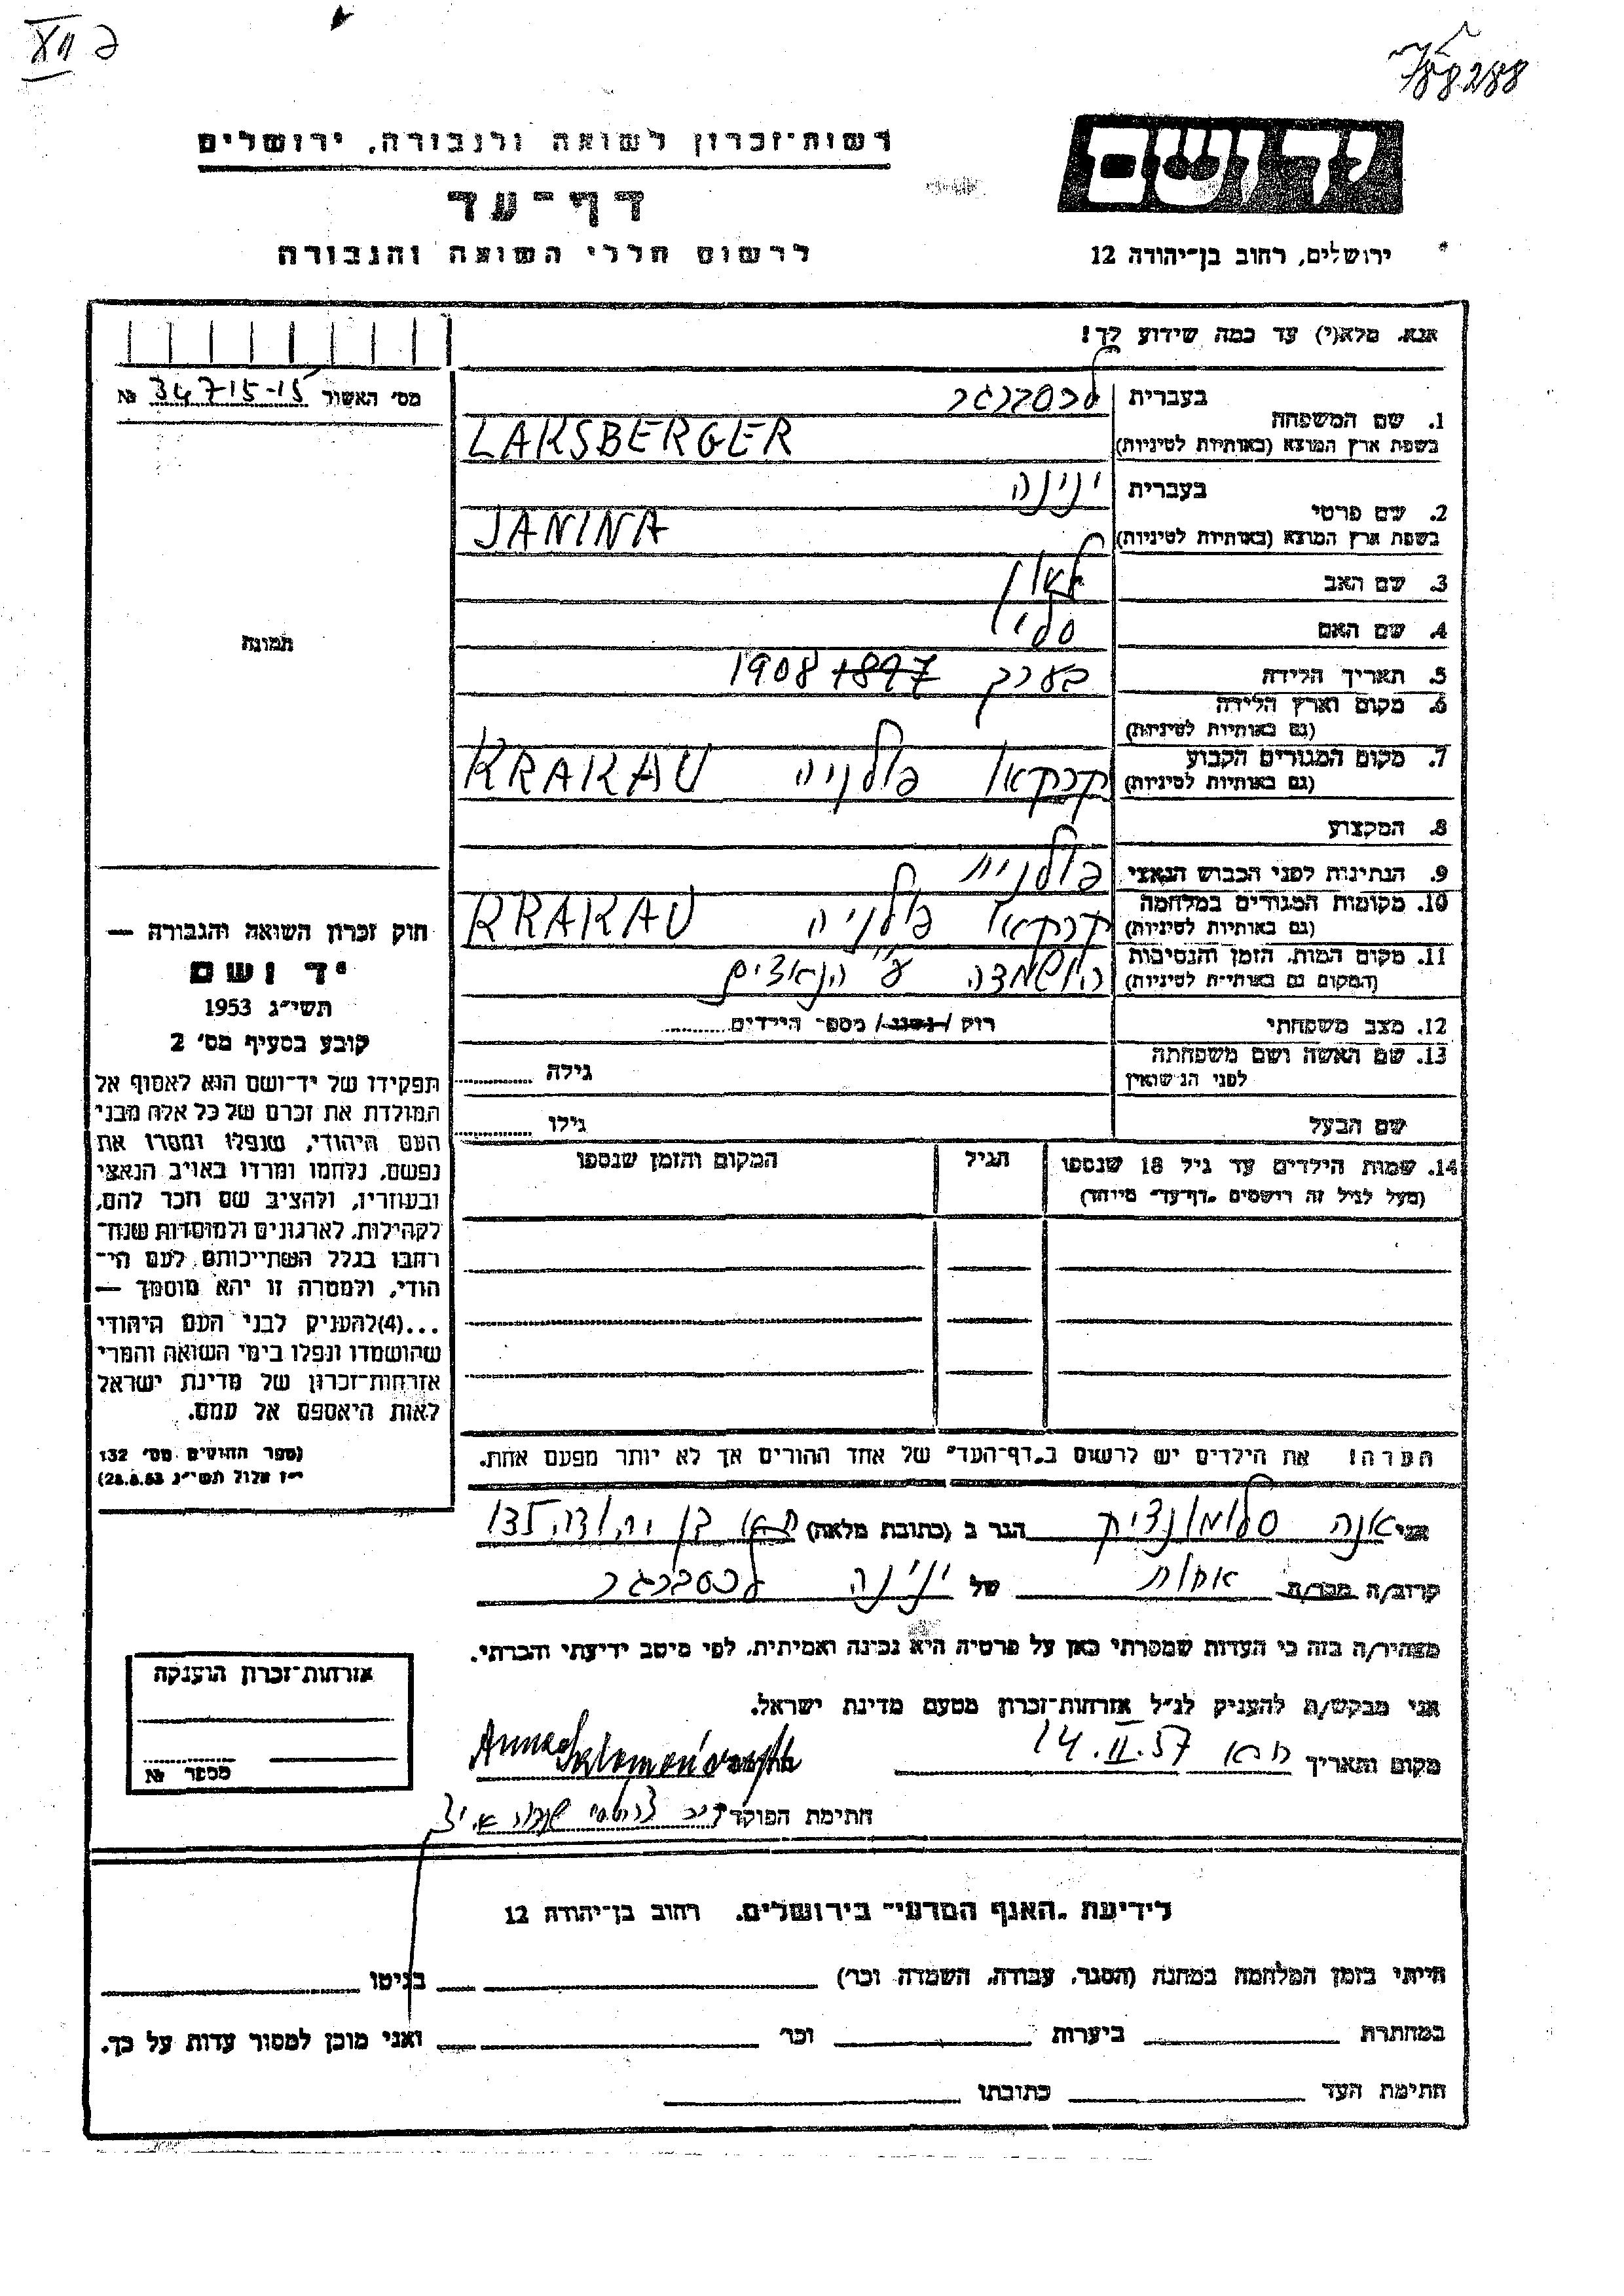 788288
רשות־זכרון לשואה ולגבורה, ירושלים
יד ושם
דף־עד
לרשום חללי השואה והגבורה
ירושלים, רחוב בן־יהודה 12
אנא, מלא(י) עד כמה שידוע לך!
מס׳ האשור 347-15-15 №
1. שם המשפחה בעברית לכסברגר
בשפת ארץ המוצא (באותיות לטיניות) LAKSBERGER
2. שם פרטי בעברית ינינה
בשפת ארץ המוצא (באותיות לטיניות) JANINA
3. שם האב לאון
4. שם האם
5. תאריך הלידה בערך 1897 1908
6. מקום וארץ הלידה
(גם באותיות לטיניות)
7. מקום המגורים הקבוע
(גם באותיות לטיניות) קרקאו פולניה KRAKAU
8. המקצוע
9. הנתינות לפני הכבוש הנאצי פולנית
10. מקומות המגורים במלחמה
(גם באותיות לטיניות) קרקאו פולניה KRAKAU
11. מקום המות, הזמן והנסיבות
(המקום גם באותיות לטיניות) הושמדה ע״י הנאצים
12. מצב משפחתי רוק / נשוי / מספר הילדים
13. שם האשה ושם משפחתה
לפני הנישואין גילה
שם הבעל גילו
14. שמות הילדים עד גיל 18 שנספו הגיל המקום והזמן שנספו
(מעל לגיל זה רושמים „דף־עד״ מיוחד)
הערה! את הילדים יש לרשום ב„דף־העד״ של אחד ההורים אך לא יותר מפעם אחת.
תמונה
חוק זכרון השואה והגבורה —
יד ושם
תשי״ג 1953
קובע בסעיף מס׳ 2
תפקידו של יד־ושם הוא לאסוף אל
המולדת את זכרם של כל אלה מבני
העם היהודי, שנפלו ומסרו את
נפשם, נלחמו ומרדו באויב הנאצי
ובעוזריו, ולהציב שם וזכר להם,
לקהילות, לארגונים ולמוסדות שנח־
רבו בגלל השתייכותם לעם הי־
הודי, ולמטרה זו יהא מוסמך —
...(4)להעניק לבני העם היהודי
שהושמדו ונפלו בימי השואה והמרי
אזרחות־זכרון של מדינת ישראל
לאות היאספם אל עמם.
(ספר החוקים מס׳ 132
י״ז אלול תשי״ג 28.8.53)
אני אנה סלומונדיק הגר ב (כתובת מלאה) ת״א בן יהודה 135
קרוב/ה מכר/ה אחות של ינינה לכסברגר
מצהיר/ה בזה כי העדות שמסרתי כאן על פרטיה היא נכונה ואמיתית, לפי מיטב ידיעתי והכרתי.
אני מבקש/ת להעניק לנ״ל אזרחות־זכרון מטעם מדינת ישראל.
מקום ותאריך ת״א 14.II.57
חתימת הפוקד
אזרחות־זכרון הוענקה
מספר №
לידיעת „האגף המדעי״ בירושלים, רחוב בן־יהודה 12
הייתי בזמן המלחמה במחנה (הסגר, עבודה, השמדה וכו׳) בגיטו
במחתרת ביערות וכו׳ ואני מוכן למסור עדות על כך.
חתימת העד כתובתו